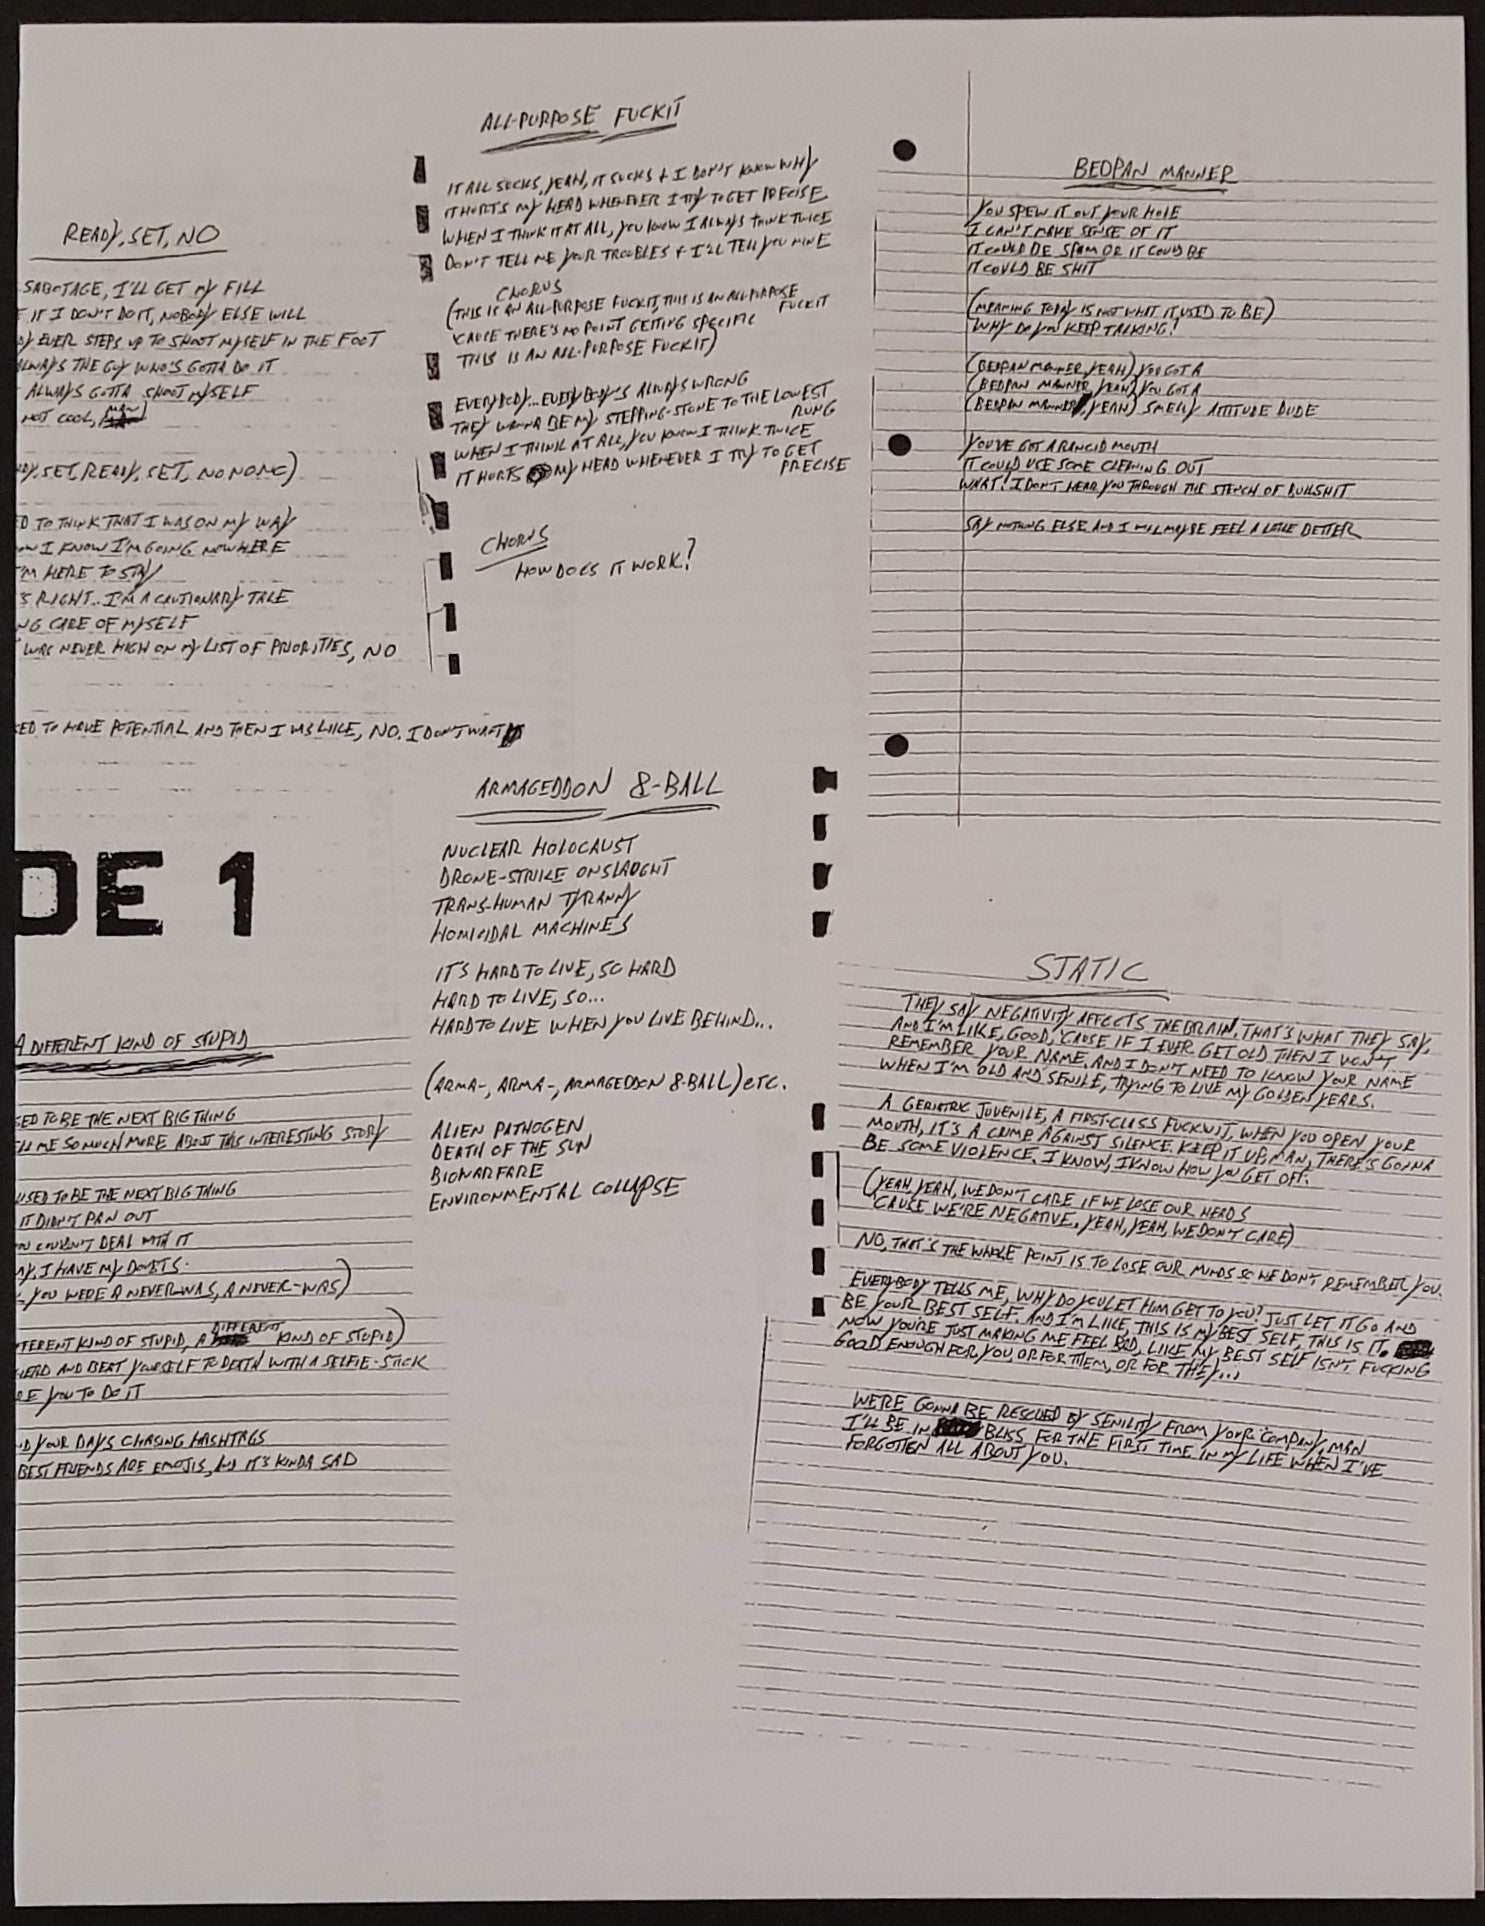 READY, SET, NO
SABOTAGE, I'LL GET MY FILL
IF I DON'T DO IT, NOBODY ELSE WILL
EVER STEPS UP TO SHOOT MYSELF IN THE FOOT
ALWAYS THE GUY WHO'S GOTTA DO IT
ALWAYS GOTTA SHOOT MYSELF
NOT COOL,
SET, READY, SET, NO NO NO)
TO THINK THAT I WAS ON MY WAY
I KNOW I'M GOING NOWHERE
I'M HERE TO STAY
RIGHT.. I'M A CAUTIONARY TALE
CARE OF MYSELF
WAS NEVER HIGH ON MY LIST OF PRIORITIES, NO
TO HAVE POTENTIAL AND THEN I WAS LIKE, NO. I DON'T WANT
DE 1
A DIFFERENT KIND OF STUPID
TO BE THE NEXT BIG THING
ME SO MUCH MORE ABOUT THIS INTERESTING STORY
USED TO BE THE NEXT BIG THING
IT DIDN'T PAN OUT
COULDN'T DEAL WITH IT
I HAVE MY DOUBTS.
YOU WERE A NEVER-WAS, A NEVER-WAS)
KIND OF STUPID, A DIFFERENT KIND OF STUPID)
AND BEAT YOURSELF TO DEATH WITH A SELFIE-STICK
YOU TO DO IT
YOUR DAYS CHASING HASHTAGS
BEST FRIENDS ARE EMOJIS, AND IT'S KINDA SAD
ALL-PURPOSE FUCKIT
IT ALL SUCKS, YEAH, IT SUCKS + I DON'T KNOW WHY
IT HURTS MY HEAD WHENEVER I TRY TO GET PRECISE
WHEN I THINK IT AT ALL, YOU KNOW I ALWAYS THINK TWICE
DON'T TELL ME YOUR TROUBLES + I'LL TELL YOU MINE
CHORUS
(THIS IS AN ALL-PURPOSE FUCKIT, THIS IS AN ALL-PURPOSE FUCKIT
'CAUSE THERE'S NO POINT GETTING SPECIFIC
THIS IS AN ALL-PURPOSE FUCKIT)
EVERYBODY... EVERYBODY'S ALWAYS WRONG
THEY WANNA BE MY STEPPING-STONE TO THE LOWEST RUNG
WHEN I THINK AT ALL, YOU KNOW I THINK TWICE
IT HURTS MY HEAD WHENEVER I TRY TO GET PRECISE
CHORUS
HOW DOES IT WORK?
ARMAGEDDON 8-BALL
NUCLEAR HOLOCAUST
DRONE-STRIKE ONSLAUGHT
TRANS-HUMAN TYRANNY
HOMICIDAL MACHINES
IT'S HARD TO LIVE, SO HARD
HARD TO LIVE, SO...
HARD TO LIVE WHEN YOU LIVE BEHIND...
(ARMA-, ARMA-, ARMAGEDDON 8-BALL) ETC.
ALIEN PATHOGEN
DEATH OF THE SUN
BIOWARFARE
ENVIRONMENTAL COLLAPSE
BEDPAN MANNER
YOU SPEW IT OUT YOUR HOLE
I CAN'T MAKE SENSE OF IT
IT COULD BE SPAM OR IT COULD BE
IT COULD BE SHIT
(MEANING TODAY IS NOT WHAT IT USED TO BE)
WHY DO YOU KEEP TALKING?
(BEDPAN MANNER, YEAH) YOU GOT A
(BEDPAN MANNER, YEAH) YOU GOT A
(BEDPAN MANNER, YEAH) SMELLY ATTITUDE DUDE
YOU'VE GOT A RANCID MOUTH
IT COULD USE SOME CLEANING OUT
WHAT? I DON'T HEAR YOU THROUGH THE STENCH OF BULLSHIT
SAY NOTHING ELSE AND I WILL MAYBE FEEL A LITTLE BETTER
STATIC
THEY SAY NEGATIVITY AFFECTS THE BRAIN. THAT'S WHAT THEY SAY,
AND I'M LIKE, GOOD, 'CAUSE IF I EVER GET OLD THEN I WON'T
REMEMBER YOUR NAME. AND I DON'T NEED TO KNOW YOUR NAME
WHEN I'M OLD AND SENILE, TRYING TO LIVE MY GOLDEN YEARS.
A GERIATRIC JUVENILE, A FIRST-CLASS FUCKWIT, WHEN YOU OPEN YOUR
MOUTH, IT'S A CRIME AGAINST SILENCE. KEEP IT UP, MAN, THERE'S GONNA
BE SOME VIOLENCE. I KNOW, I KNOW HOW YOU GET OFF.
(YEAH, YEAH, WE DON'T CARE IF WE LOSE OUR HEADS
'CAUSE WE'RE NEGATIVE, YEAH, YEAH, WE DON'T CARE)
NO, THAT'S THE WHOLE POINT IS TO LOSE OUR MINDS SO WE DON'T REMEMBER YOU.
EVERYBODY TELLS ME, WHY DO YOU LET HIM GET TO YOU? JUST LET IT GO AND
BE YOUR BEST SELF. AND I'M LIKE, THIS IS MY BEST SELF, THIS IS IT.
NOW YOU'RE JUST MAKING ME FEEL BAD, LIKE MY BEST SELF ISN'T FUCKING
GOOD ENOUGH FOR YOU, OR FOR THEM, OR FOR THEY...
WE'RE GONNA BE RESCUED BY SENILITY FROM YOUR COMPANY, MAN
I'LL BE IN BLISS FOR THE FIRST TIME IN MY LIFE WHEN I'VE
FORGOTTEN ALL ABOUT YOU.